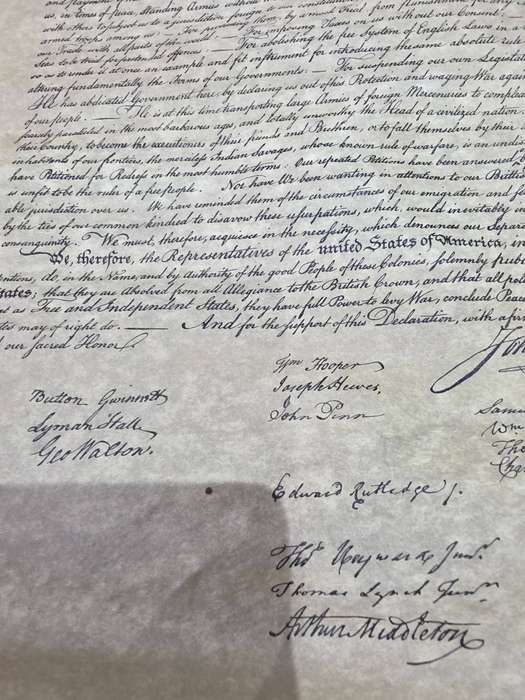 us, in times of peace, Standing Armies without
with others to subject us to a jurisdiction foreign to our constitution
armed troops among us: — For protecting them, by a mock Trial from punishment for any
our Trade with all parts of the world: — For imposing Taxes on us without our Consent: —
Seas to be tried for pretended offences — For abolishing the free System of English Laws in a
so as to render it at once an example and fit instrument for introducing the same absolute rule
altering fundamentally the Forms of our Governments: — For suspending our own Legislat
He has abdicated Government here, by declaring us out of his Protection and waging War again
of our people. — He is at this time transporting large Armies of foreign Mercenaries to compleat
scarcely paralleled in the most barbarous ages, and totally unworthy the Head of a civilized nation.
their Country, to become the executioners of their friends and Brethren, or to fall themselves by their
inhabitants of our frontiers, the merciless Indian Savages, whose known rule of warfare, is an undis
have Petitioned for Redress in the most humble terms: Our repeated Petitions have been answered
is unfit to be the ruler of a free people. Nor have We been wanting in attentions to our Brittis
able jurisdiction over us. We have reminded them of the circumstances of our emigration and
by the ties of our common kindred to disavow these usurpations, which, would inevitably in
consanguinity. We must, therefore, acquiesce in the necessity, which denounces our Separa
We, therefore, the Representatives of the united States of America, in
entions, do, in the Name, and by Authority of the good People of these Colonies, solemnly publ
States; that they are Absolved from all Allegiance to the British Crown, and that all pol
as Free and Independent States, they have full Power to levy War, conclude Peac
tes may of right do. — And for the support of this Declaration, with a fir
d our sacred Honor.
Button Gwinnett
Lyman Hall
Geo Walton.
Wm Hooper
Joseph Hewes,
John Penn
Edward Rutledge /.
Thos Heyward Junr.
Thomas Lynch Junr.
Arthur Middleton
Joh
Samu
Wm
Tho
Cha